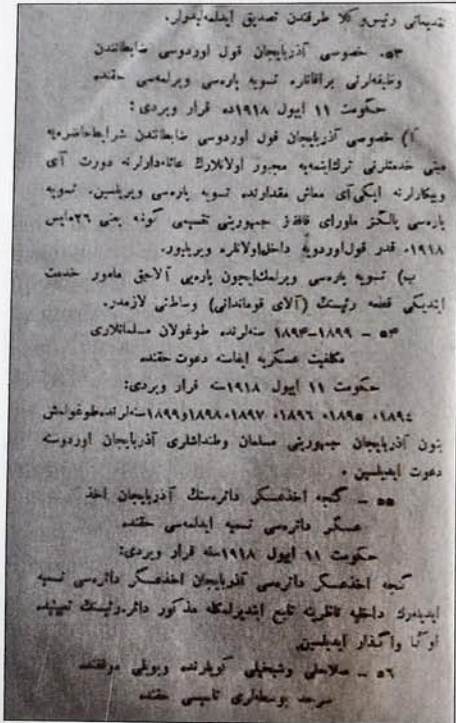 تقدیماتی رئیس وکلا طرفندن تصدیق ایدلمه‌لیدرلر.
۵۳. خصوصی آذربایجان قول اوردوسی ضابطانندن
وظیفه‌لرنی براقانلره تسویه پاره‌سی ویرلمه‌سی حقنده
حکومت ۱۱ ایول ۱۹۱۸ده قرار ویردی:
آ) خصوصی آذربایجان قول اوردوسی ضابطانندن شرایط حاضره‌یه
مبنی خدمتلرنی ترك ایتمه‌یه مجبور اولانلارك عائله‌دارلرنه دورت آی
وبیکارلرنه ایکی آی معاش مقدارنده تسویه پاره‌سی ویریلسین. تسویه
پاره‌سی یالکز ماورای قافقاز جمهوریتی تقسیمی کونه یعنی ۲۶ مایس
۱۹۱۸ه قدر قول اوردویه داخل اولانلره ویریلیور.
ب) تسویه پاره‌سی ویرلمك ایچون پاره‌یی آلاجق مامور خدمت
ایتدیکی قطعه رئیسنك (آلای قوماندانی) وساطتی لازمدر.
۵۴ – ۱۸۹۹–۱۸۹۴ سنه‌لرنده طوغولان مسلمانلاری
مکلفیت عسکریه ایفاسنه دعوت حقنده
حکومت ۱۱ ایول ۱۹۱۸سنه قرار ویردی:
۱۸۹٤، ۱۸۹۵، ۱۸۹۶، ۱۸۹۷، ۱۸۹۸و۱۸۹۹سنه‌لرنده طوغولمش
بتون آذربایجان جمهوریتی مسلمان وطنداشلری آذربایجان اوردوسنه
دعوت ایدیلسین.
۵۵ – گنجه اخذعسکر دائره‌سنك آذربایجان اخذ
عسکر دائره‌سی تسمیه ایدلمه‌سی حقنده
حکومت ۱۱ ایول ۱۹۱۸سنه قرار ویردی:
گنجه اخذعسکر دائره‌سی آذربایجان اخذعسکر دائره‌سی تسمیه
ایدیله‌رك داخلیه ناظرینه تابع ایتدیرلمکله مذکور دائره رئیسنك تعیینیده
اوکا واگذار ایدیلسین.
۵۶ – صلاحلی وشیخیلی کویلرنده وپویلی موقفنده
سرحد پوسطه‌لری تاسیسی حقنده